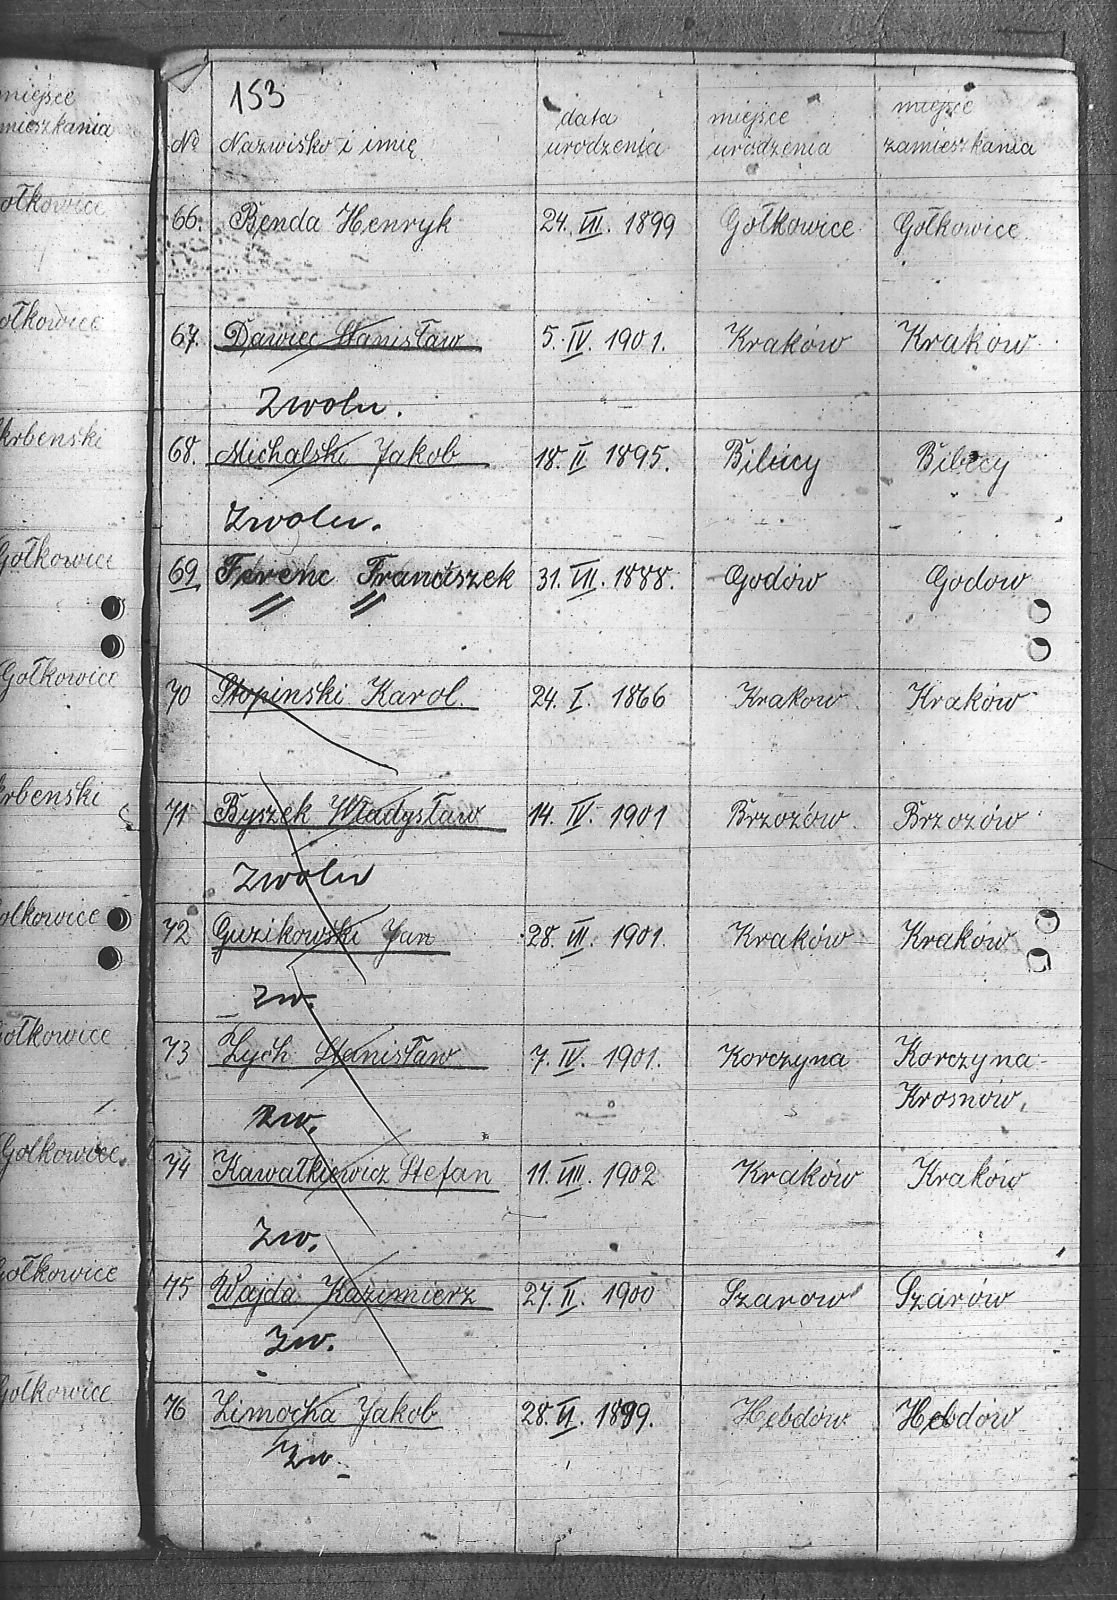 miejsce
mieszkania
ołkowice
ołkowice
krbenski
Gołkowice
Gołkowice
krbenski
ołkowice
Gołkowice
Gołkowice
Gołkowice
Gołkowice
153
№ Nazwisko i imię data urodzenia miejsce urodzenia miejsce zamieszkania
66. Benda Henryk 24. VII. 1899 Gołkowice Gołkowice
67. Dawiec Stanisław 5. IV. 1901. Kraków Kraków
Zwoln.
68. Michalski Jakob 18. II 1895. Bibicy Bibicy
Zwoln.
69 Ferenc Franciszek 31. VII. 1888. Godów Godow
70 Stopinski Karol. 24. I. 1866 Krakow Kraków
71 Byszek Władysław 14. IV. 1901 Brzozów Brzozów
Zwoln
72 Guzikowski Jan 28. VII. 1901. Kraków Kraków
Zw.
73 Zych Stanisław 7. IV. 1901. Korczyna Korczyna-
Krosnów,
Zw.
74 Kawałkiewicz Stefan 11. VIII. 1902 Kraków Kraków
Zw.
75 Wajda Kazimierz 27. II. 1900 Szarow Szarów
Zw.
76 Zimocka Jakob 28. VI. 1899. Hebdów Hebdow
Zw